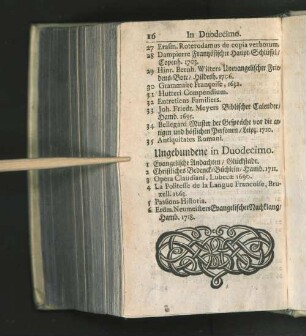 16 In Duodecimo.
27 Erasm. Roterodamus de copia verborum.
28 Dampierre Frantzösischer Haupt-Schlüssel/
Copenh. 1703.
29 Hinr. Bernh. Witters Unevangelischer Frie-
dens-Bote/ Hildesh. 1706.
30 Grammaire Françoise, 1632.
31 Hutteri Compendium.
32 Entretiens Familiers.
33 Joh. Friedr. Meyers Biblischer Calender/
Hamb. 1695.
34 Bellegard Muster der Gespräche vor die ar-
tigen und höflichen Personen/ Leipz. 1710.
35 Antiquitates Romani.
Ungebundene in Duodecimo.
1 Evangelische Andachten/ Glückstadt.
2 Christliches Bedenck-Büchlein/ Hamb. 1711.
3 Opera Claudiani, Lubecæ 1690.
4 La Politesse de la Langue Francoise, Bru-
xell. 1663.
5 Passions-Historia.
6 Erdm. Neumeisters Evangelischer Nachklang/
Hamb. 1718.